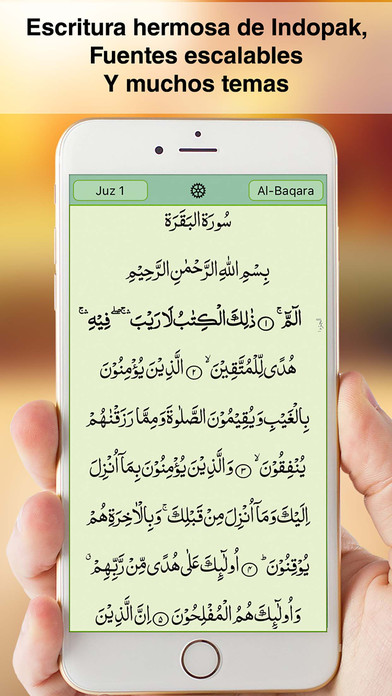 Escritura hermosa de Indopak,
Fuentes escalables
Y muchos temas
Juz 1
Al-Baqara
سُورَة البَقَرَة
بِسْمِ اللهِ الرَّحْمٰنِ الرَّحِيْمِ
الٓمّٓ ۚ ﴿۱﴾ ذٰلِكَ الْكِتٰبُ لَا رَيْبَ ۛۖۚ فِيْهِ ۛۚ
هُدًى لِّلْمُتَّقِيْنَ ۙ ﴿۲﴾ الَّذِيْنَ يُؤْمِنُوْنَ
بِالْغَيْبِ وَيُقِيْمُوْنَ الصَّلٰوةَ وَمِمَّا رَزَقْنٰهُمْ
يُنْفِقُوْنَ ۙ ﴿۳﴾ وَالَّذِيْنَ يُؤْمِنُوْنَ بِمَآ اُنْزِلَ
اِلَيْكَ وَمَآ اُنْزِلَ مِنْ قَبْلِكَ ۚ وَبِالْاٰخِرَةِ هُمْ
يُوْقِنُوْنَ ؕ ﴿۴﴾ اُولٰٓئِكَ عَلٰى هُدًى مِّنْ رَّبِّهِمْ ۙ
وَاُولٰٓئِكَ هُمُ الْمُفْلِحُوْنَ ﴿۵﴾ اِنَّ الَّذِيْنَ